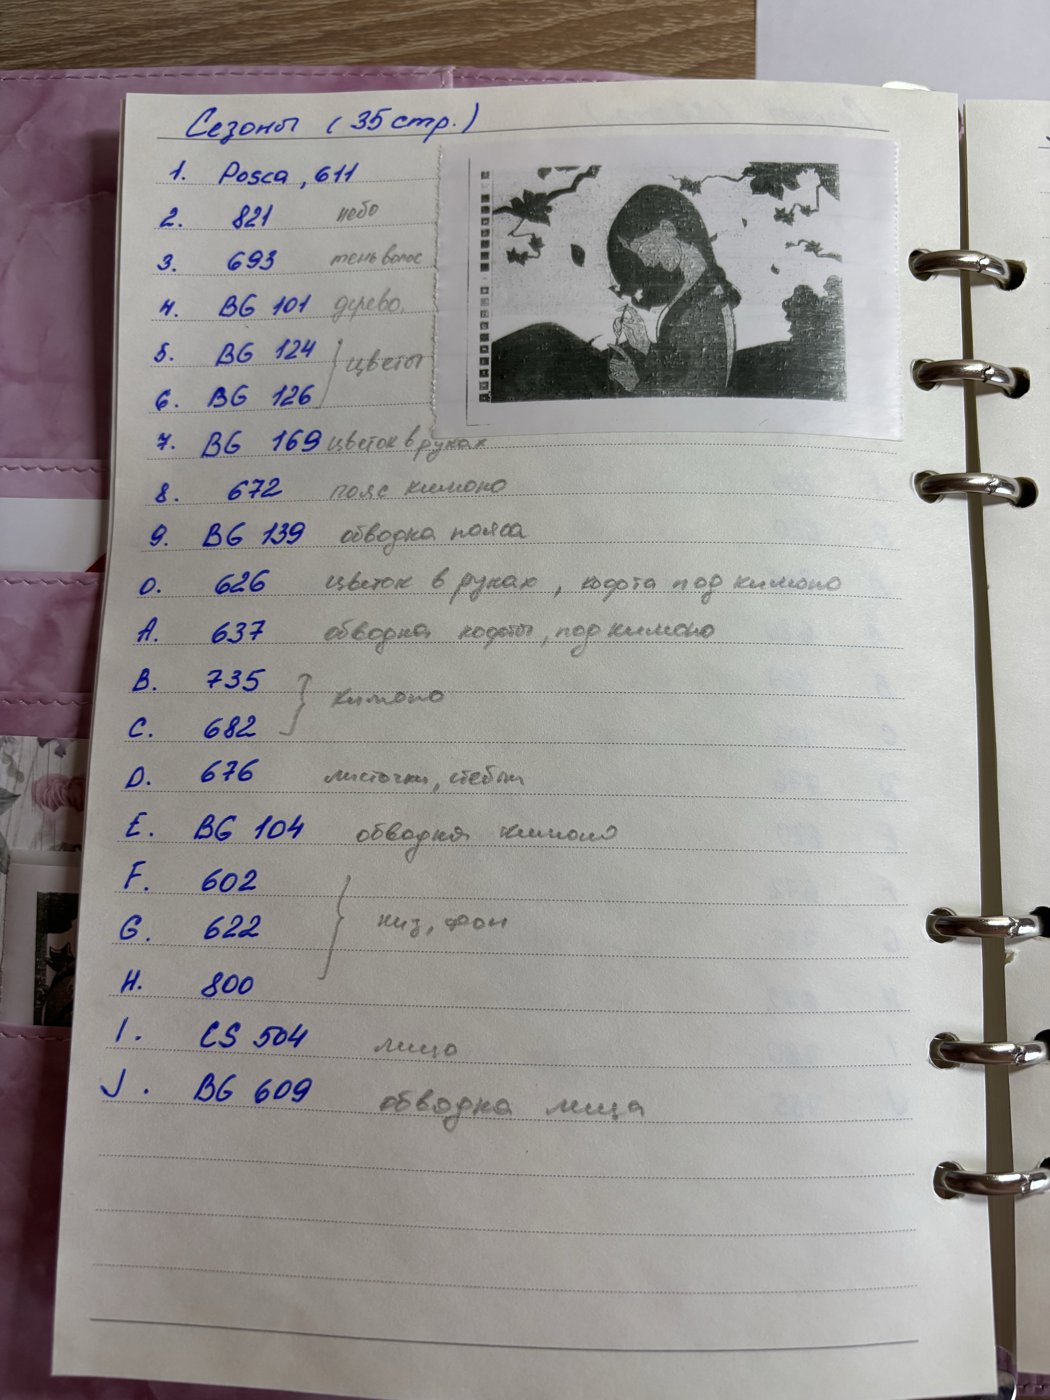 Сезоны (35 стр.)
1. Posca, 611
2. 821 небо
3. 693 тень волос
4. BG 101 дерево.
5. BG 124
цветы
6. BG 126
7. BG 169 цветок в руках
8. 672 пояс кимоно
9. BG 139 обводка пояса
0. 626 цветок в руках, кофта под кимоно
A. 637 обводка кофты, под кимоно
B. 735
кимоно
C. 682
D. 676 листочки, стебли
E. BG 104 обводка кимоно
F. 602
G. 622 низ, фон
H. 800
I. CS 504 лицо
J. BG 609 обводка лица